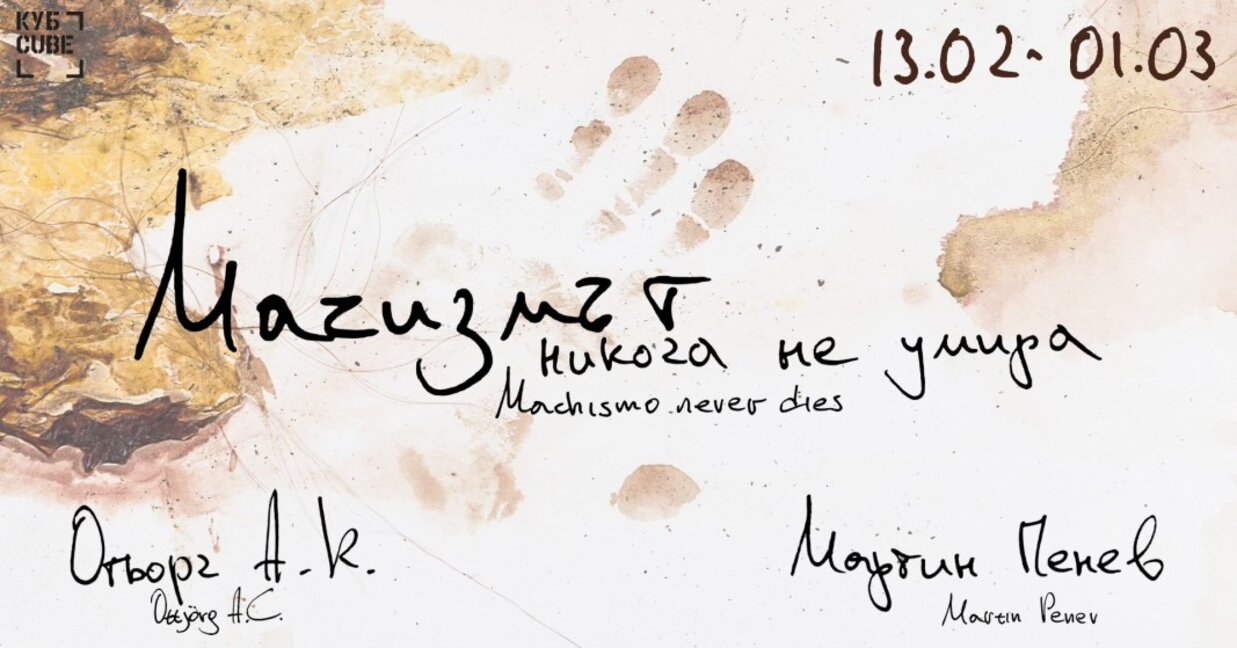 КУБ
CUBE
13.02 - 01.03
Мачизмът
никога не умира
Machismo never dies
Отьорг А.К.
Ottjörg A.C.
Мартин Пенев
Martin Penev